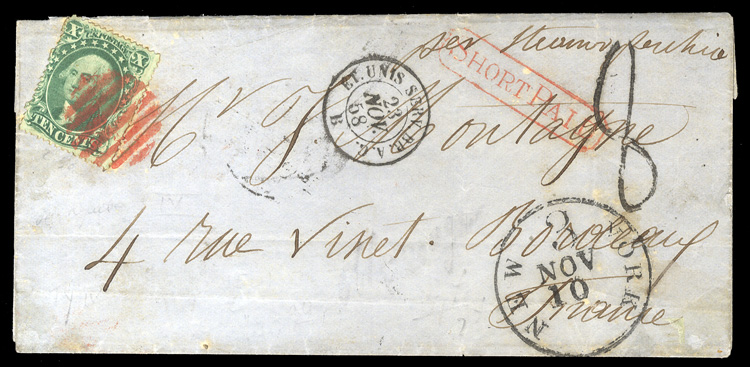 X U.S. POSTAGE X
TEN CENTS
per steamer Persia
SHORT PAID
8
ET. UNIS SERV. BR. A. C.
23
NOV.
58
B
Mr J. Montagne
4 rue Vinet. Bordeaux
France
NEW YORK
9
NOV
10